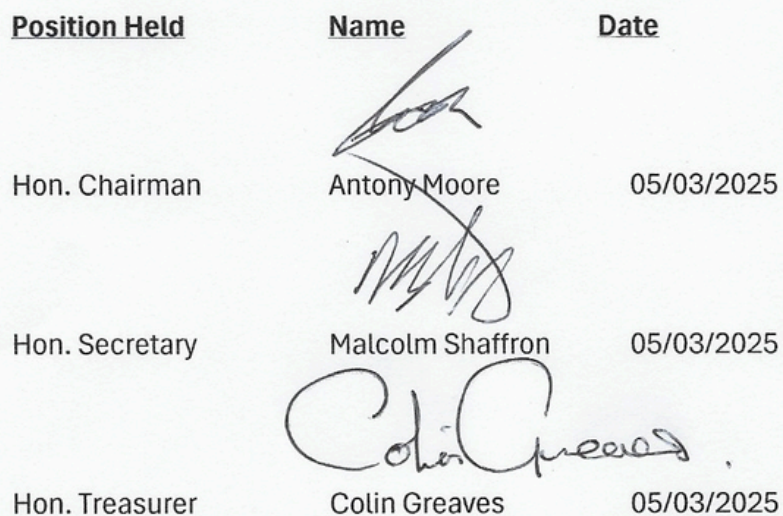 Position Held Name Date
Hon. Chairman Antony Moore 05/03/2025
Hon. Secretary Malcolm Shaffron 05/03/2025
Colin Greaves
Hon. Treasurer Colin Greaves 05/03/2025